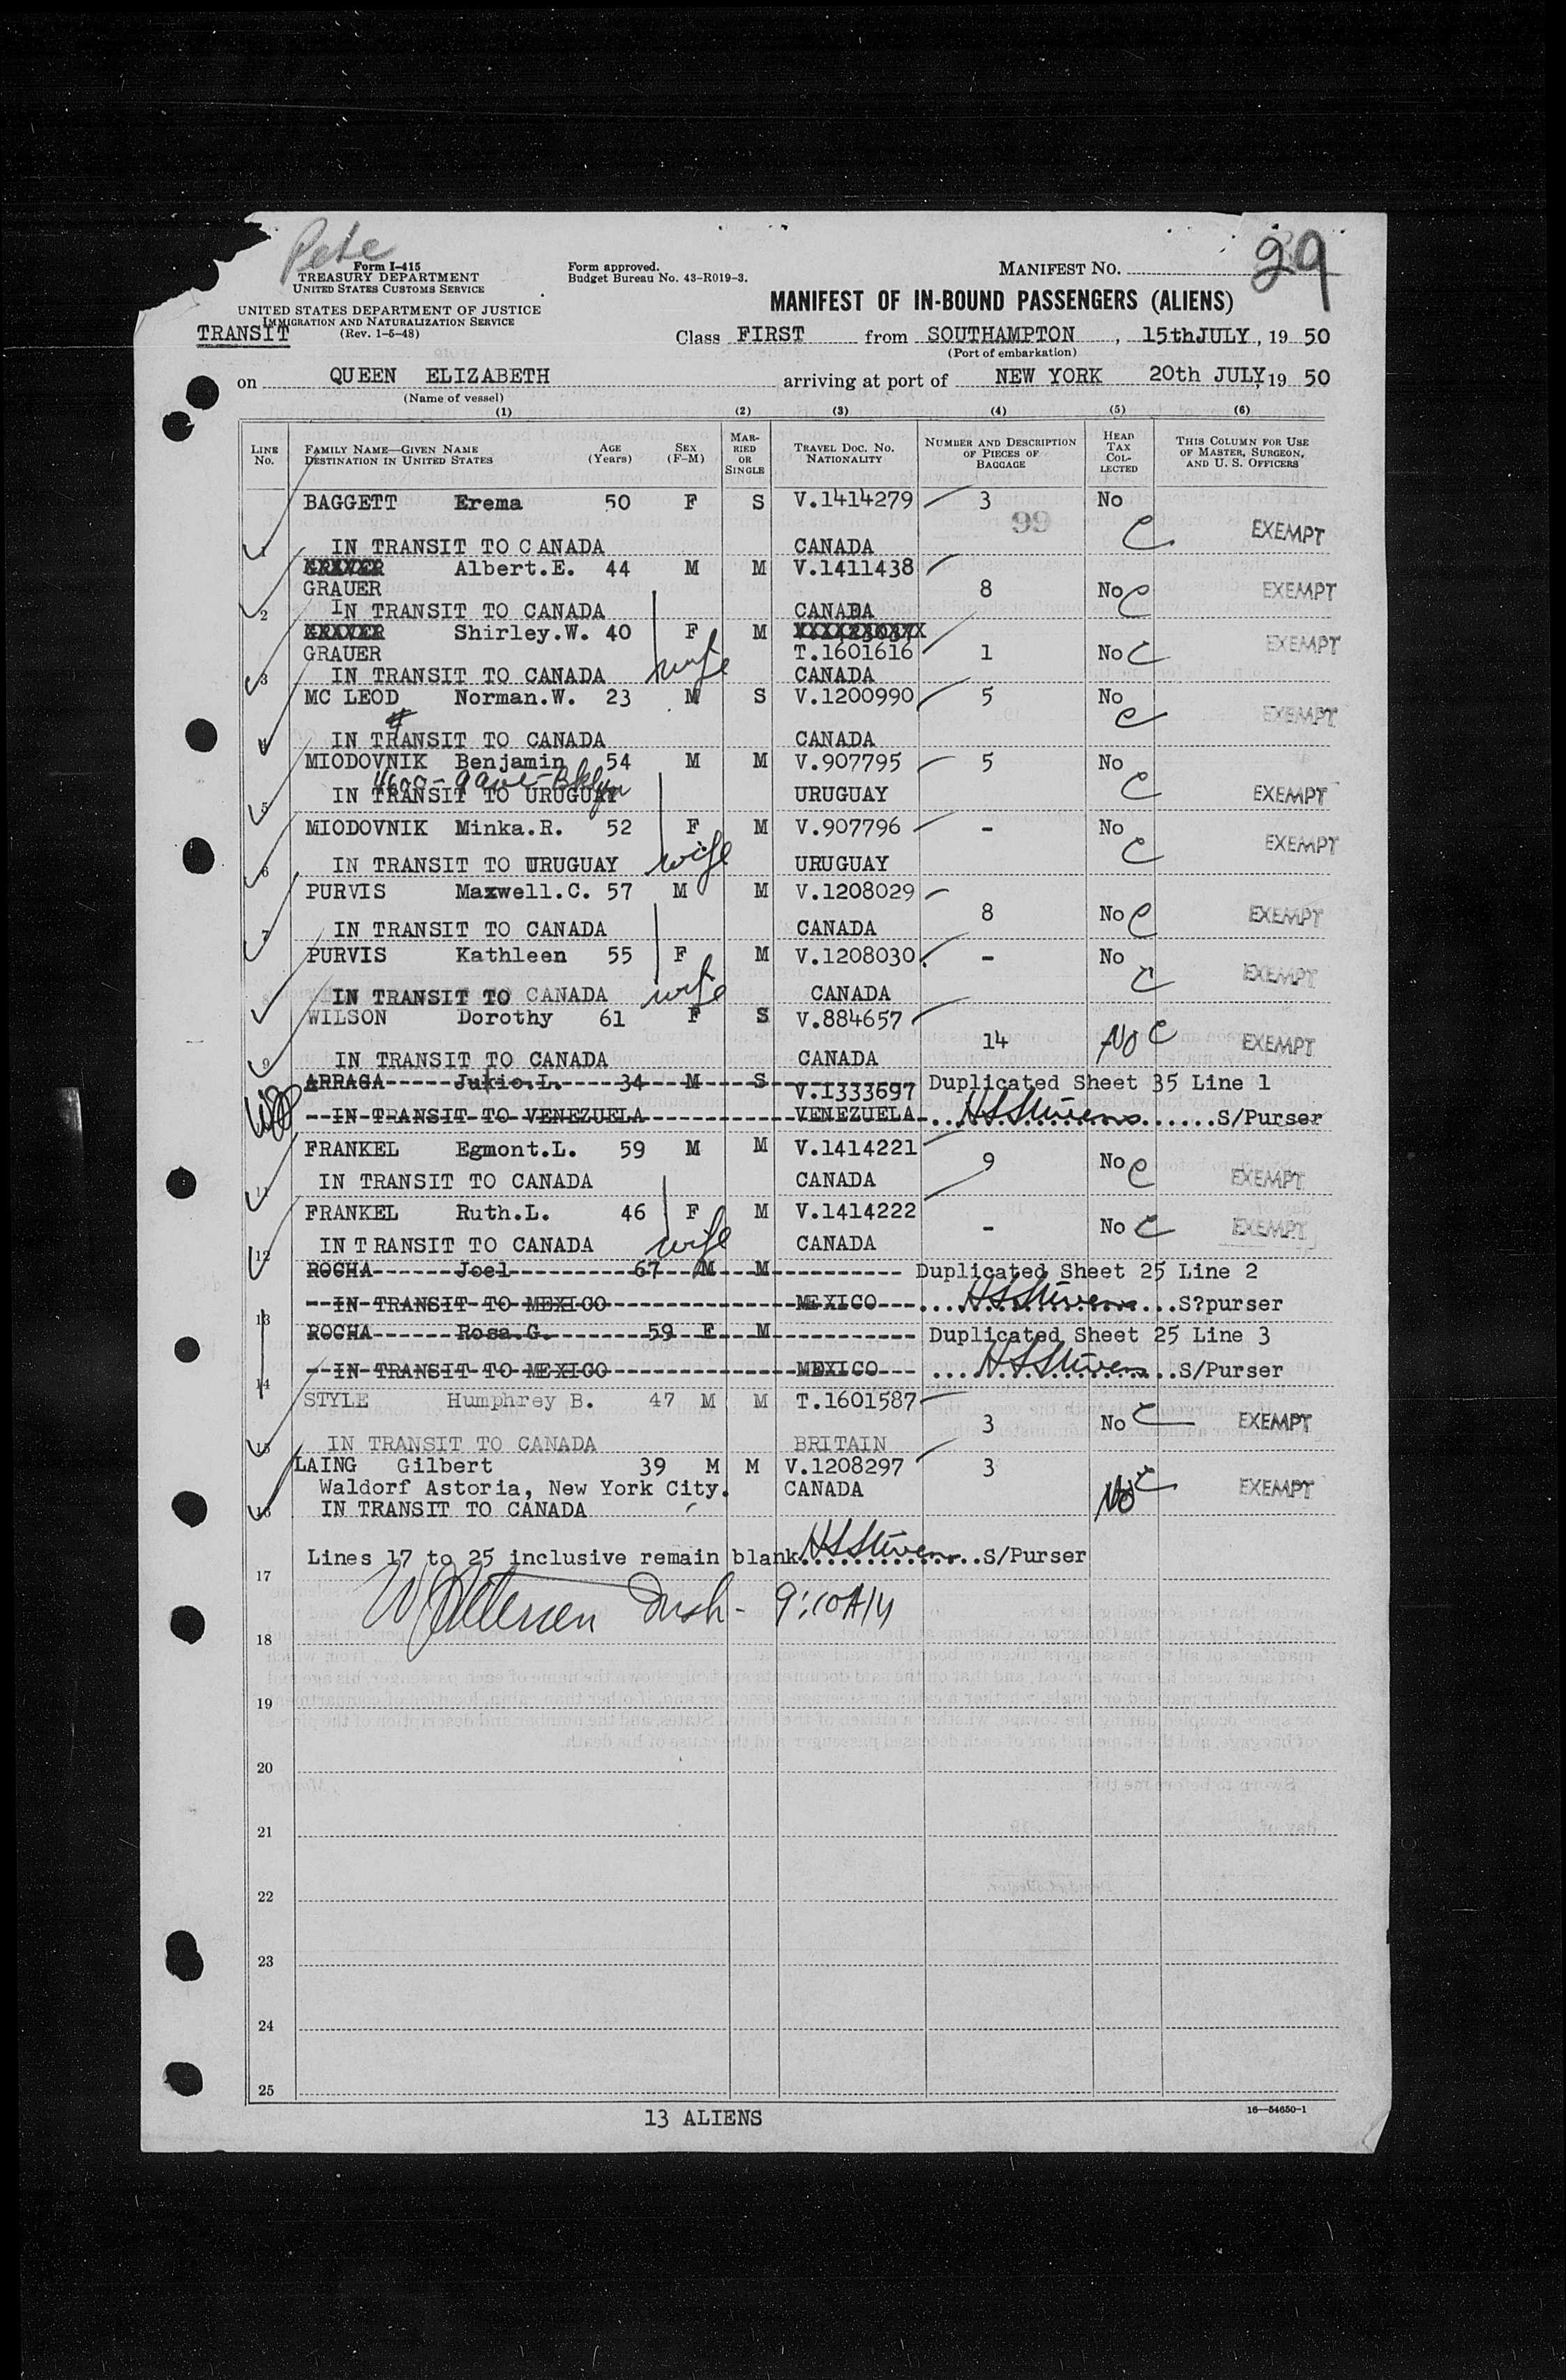 Pete
29
Form I-415
TREASURY DEPARTMENT
UNITED STATES CUSTOMS SERVICE
Form approved.
Budget Bureau No. 43-R019-3.
MANIFEST NO.
UNITED STATES DEPARTMENT OF JUSTICE
IMMIGRATION AND NATURALIZATION SERVICE
(Rev. 1-5-48)
TRANSIT
MANIFEST OF IN-BOUND PASSENGERS (ALIENS)
Class FIRST from SOUTHAMPTON, 15thJULY, 19 50
(Port of embarkation)
on QUEEN ELIZABETH arriving at port of NEW YORK 20th JULY, 19 50
(Name of vessel)
(1) (2) (3) (4) (5) (6)
LINE No. FAMILY NAME—GIVEN NAME DESTINATION IN UNITED STATES AGE (Years) SEX (F-M) MARRIED OR SINGLE TRAVEL DOC. NO. NATIONALITY NUMBER AND DESCRIPTION OF PIECES OF BAGGAGE HEAD TAX COLLECTED THIS COLUMN FOR USE OF MASTER, SURGEON, AND U. S. OFFICERS
BAGGETT Erema 50 F S V.1414279 3 No
99
1 IN TRANSIT TO CANADA CANADA C EXEMPT
Albert.E. 44 M M V.1411438
GRAUER 8 No C EXEMPT
2 IN TRANSIT TO CANADA CANADA
Shirley.W. 40 F M
GRAUER T.1601616 1 No C EXEMPT
3 IN TRANSIT TO CANADA wife CANADA
MC LEOD Norman.W. 23 M S V.1200990 5 No C EXEMPT
4 IN TRANSIT TO CANADA CANADA
MIODOVNIK Benjamin 54 M M V.907795 5 No
4600 - 9 ave - Bklyn
5 IN TRANSIT TO URUGUAY URUGUAY C EXEMPT
MIODOVNIK Minka.R. 52 F M V.907796 - No
6 IN TRANSIT TO URUGUAY wife URUGUAY C EXEMPT
PURVIS Maxwell.C. 57 M M V.1208029
7 IN TRANSIT TO CANADA CANADA 8 No C EXEMPT
PURVIS Kathleen 55 F M V.1208030. - No
8 IN TRANSIT TO CANADA wife CANADA C EXEMPT
WILSON Dorothy 61 F S V.884657
14 No C EXEMPT
9 IN TRANSIT TO CANADA CANADA
ARRAGA Jukio.L. 34 M S V.1333697 Duplicated Sheet 35 Line 1
--IN TRANSIT TO VENEZUELA VENEZUELA HSStivens S/Purser
FRANKEL Egmont.L. 59 M M V.1414221 9 No C
11 IN TRANSIT TO CANADA CANADA EXEMPT
FRANKEL Ruth.L. 46 F M V.1414222 - No C EXEMPT
12 IN TRANSIT TO CANADA wife CANADA
ROCHA Joel 67 M M Duplicated Sheet 25 Line 2
13 --IN TRANSIT TO MEXICO MEXICO HSStivens S?purser
ROCHA Rosa.G. 59 F M Duplicated Sheet 25 Line 3
14 --IN TRANSIT TO MEXICO MEXICO HSStivens S/Purser
STYLE Humphrey B. 47 M M T.1601587
3 No C EXEMPT
15 IN TRANSIT TO CANADA BRITAIN
LAING Gilbert 39 M M V.1208297 3
Waldorf Astoria, New York City. CANADA No C EXEMPT
16 IN TRANSIT TO CANADA
Lines 17 to 25 inclusive remain blank HSStivens S/Purser
17
Insp - 9:10AM
18
19
20
21
22
23
24
25
13 ALIENS
16—54650-1